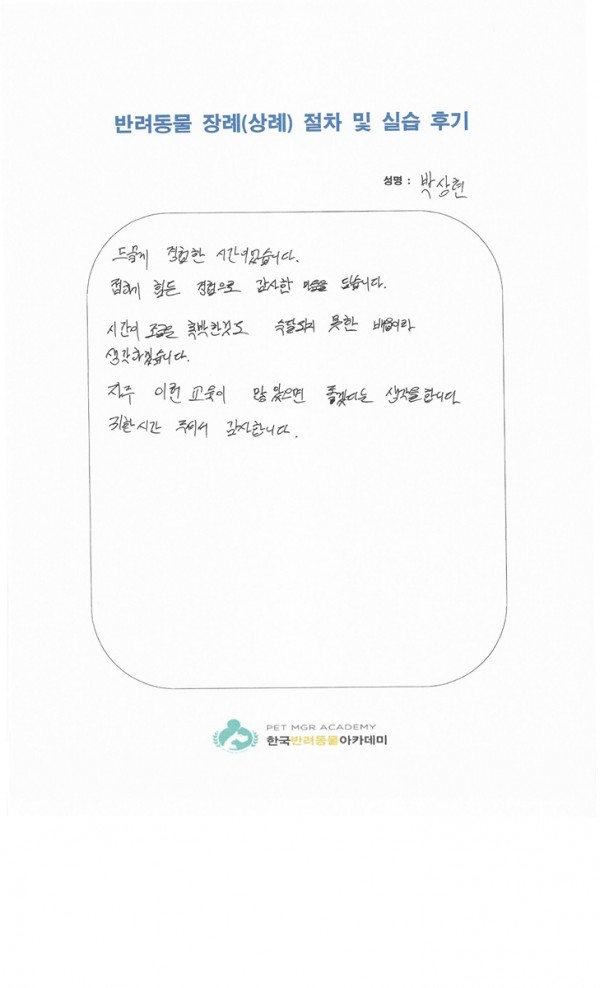 반려동물 장례(상례) 절차 및 실습 후기
성명 : 박상현
드물게 경험한 시간이었습니다.
접하기 힘든 경험으로 감사한 마음을 담습니다.
시간이 조금은 촉박한것도 못한 배움이라
생각하겠습니다.
자주 이런 교육이 많았으면 좋겠다는 생각을 합니다.
귀한시간 주셔서 감사합니다.
PET MGR ACADEMY
한국반려동물아카데미